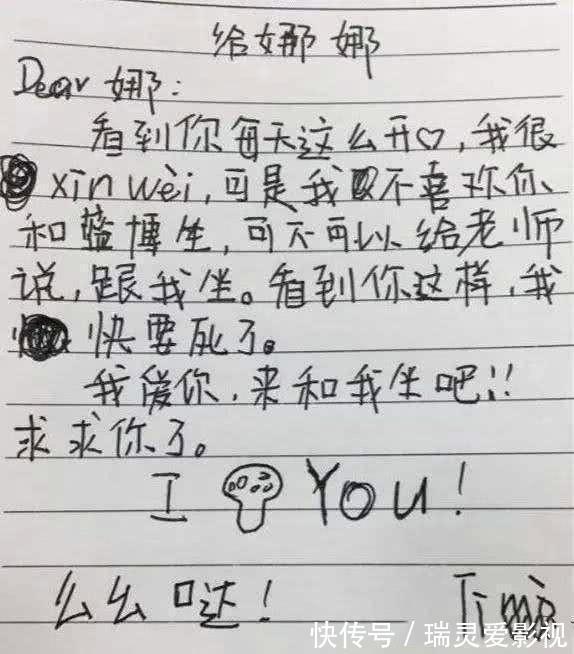 给娜娜
Dear 娜:
看到你每天这么开♡,我很
xīn wèi,可是我不喜欢你
和 博生,可不可以给老师
说,跟我坐。看到你这样,我
快要死了。
我爱你,来和我坐吧!!
求求你了。
I YOU!
么么哒!
快传号/瑞灵爱影视